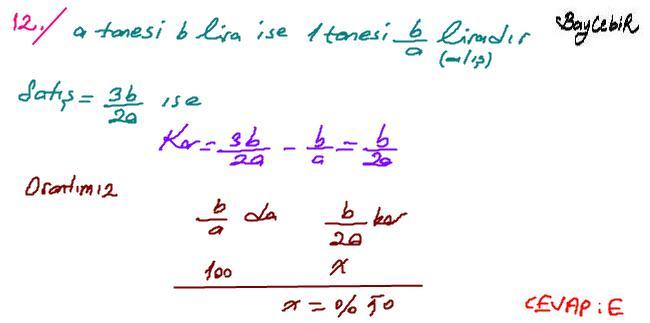 12./ a tanesi b lira ise 1 tanesi b/a liradır
BAYCEBİR
(alış)
Satış = 3b/2a ise
Kar = 3b/2a - b/a = b/2a
Orantımız
b/a da b/2a kar
100 x
x = % 50
CEVAP : E